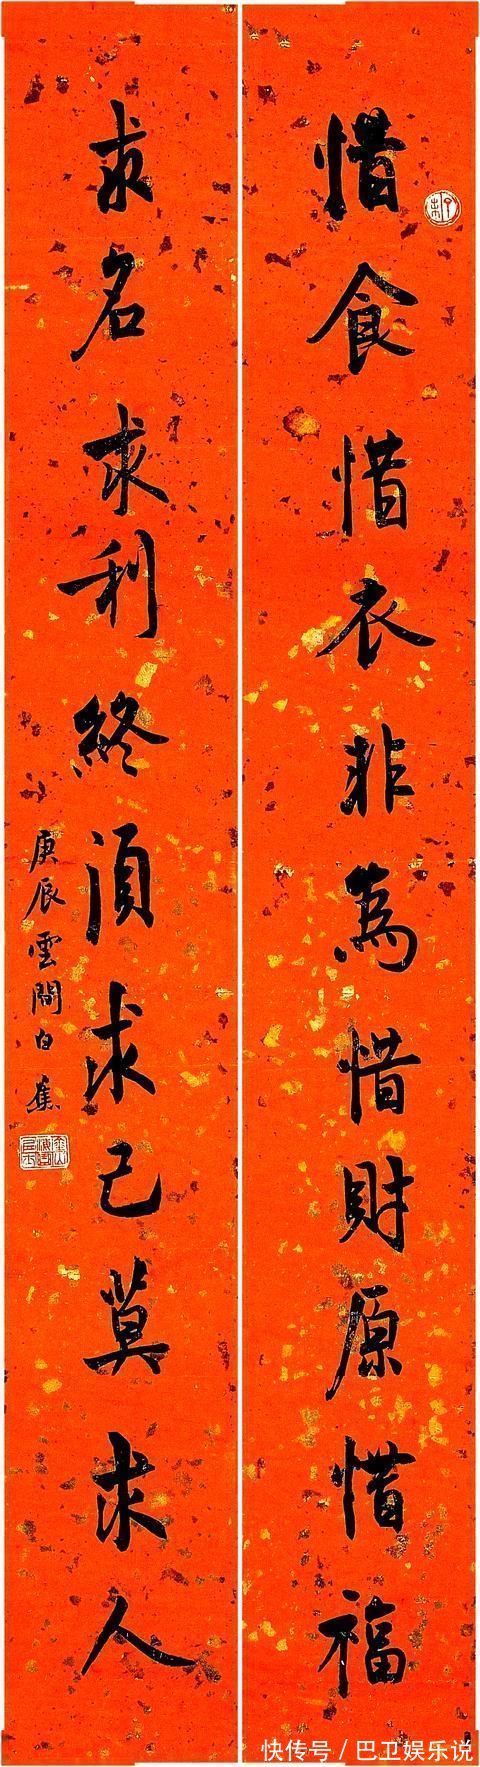 惜食惜衣非為惜財原惜福
求名求利終須求己莫求人
庚辰雲間白蕉
快传号/巴卫娱乐说